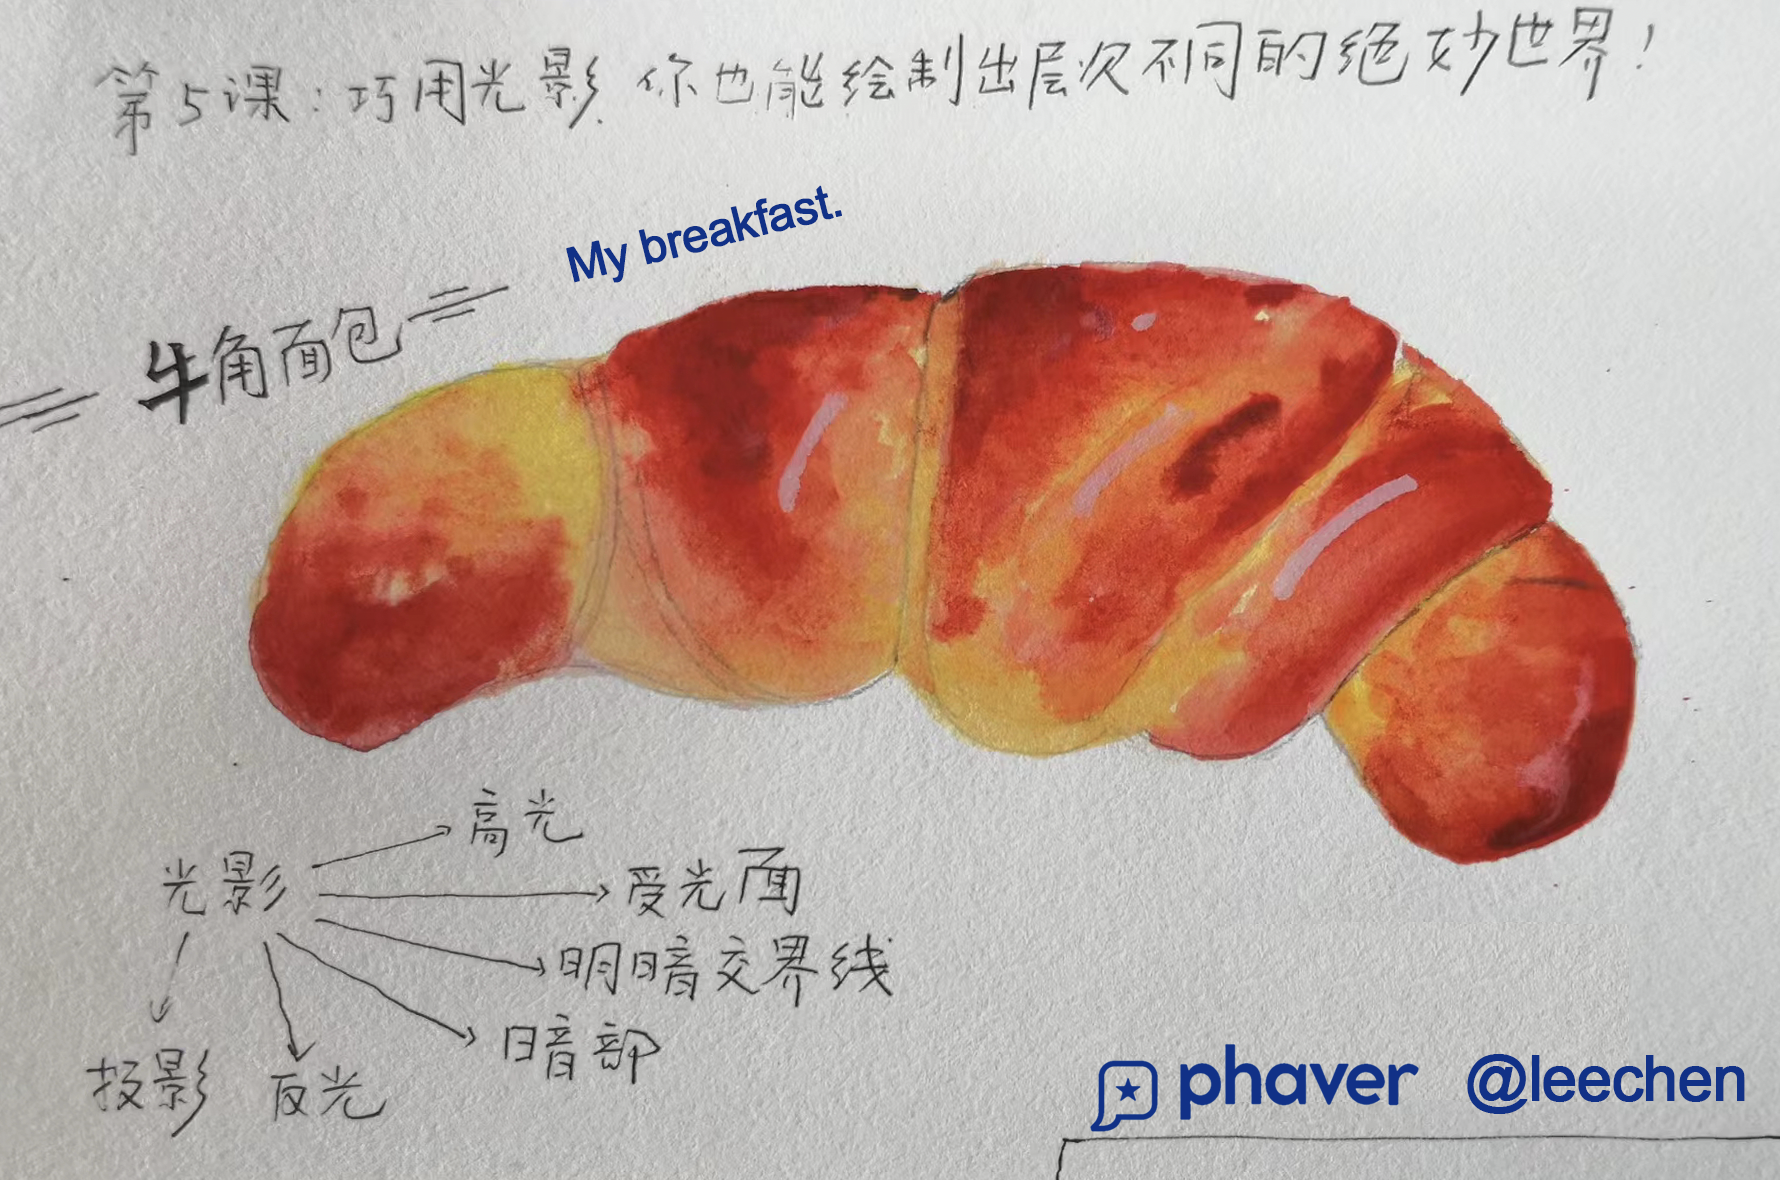 第5课：巧用光影 你也能绘制出层次不同的绝妙世界！
My breakfast.
牛角面包
高光
光影
受光面
明暗交界线
暗部
投影
反光
phaver @leechen